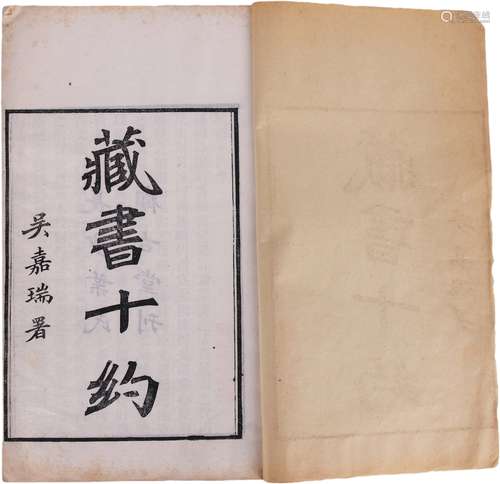 藏書十約
吳嘉瑞署